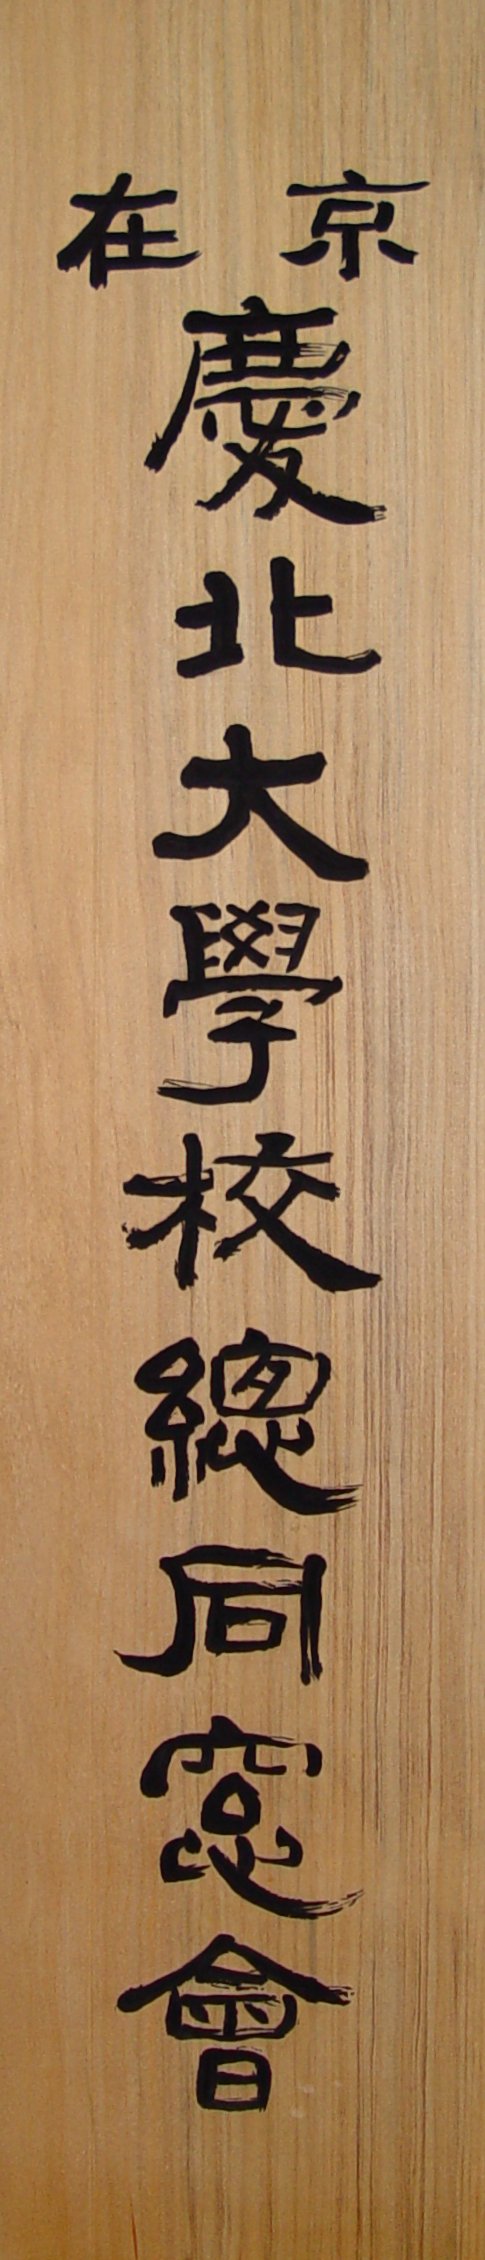 在京
慶北大學校總同窓會